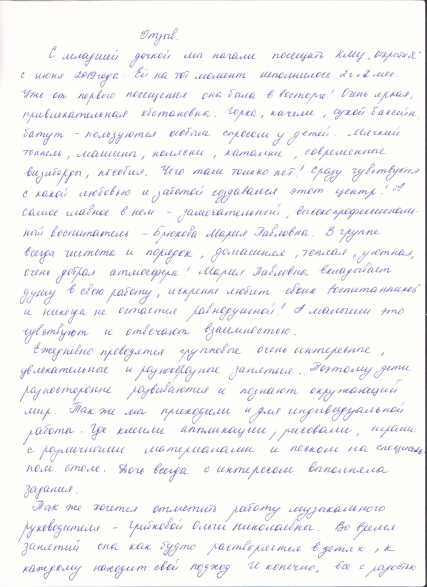 Отзыв.
С младшей дочкой мы начали посещать Клуб "открытия"
с июня 2019 года. Ей на тот момент исполнилось 2 г. 2 мес.
Уже от первого посещения она была в восторге! Очень яркая,
привлекательная обстановка. Горка, качели, сухой бассейн,
батут - пользуются особым спросом у детей. Мягкий
тоннель, машины, коляски, каталки, современные
бизиборды, пособия. Чего там только нет! Сразу чувствуется
с какой любовью и заботой создавался этот центр! А
самое главное в нём - замечательной, высокопрофессиональ-
ный воспитатель - Мария Павловна. В группе
всегда чистота и порядок, домашняя, теплая, уютная,
очень добрая атмосфера! Мария Павловна вкладывает
душу в свою работу, искренне любит своих воспитанников
и никогда не остается равнодушной! А малыши это
чувствуют и отвечают взаимностью.
Ежедневно проводятся групповые очень интересные,
увлекательные и разнообразные занятия. Поэтому дети
разносторонне развиваются и познают окружающий
мир. Так же мы приходили и для индивидуальной
работы. Где клеили аппликации, рисовали, играли
с различными материалами и песком на специаль-
ном столе. Дочь всегда с интересом выполняла
задания.
Так же хочется отметить работу музыкального
руководителя - Ольги Николаевны. Во время
занятий она как будто растворяется в детях, к
каждому находит свой подход. И конечно, все с радостью